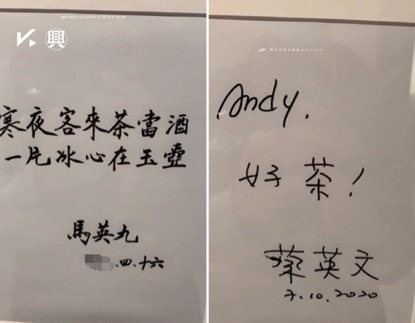 興
寒夜客來茶當酒
一片冰心在玉壺
馬英九
.四.十六
Andy.
好茶！
蔡英文
7.10.2020